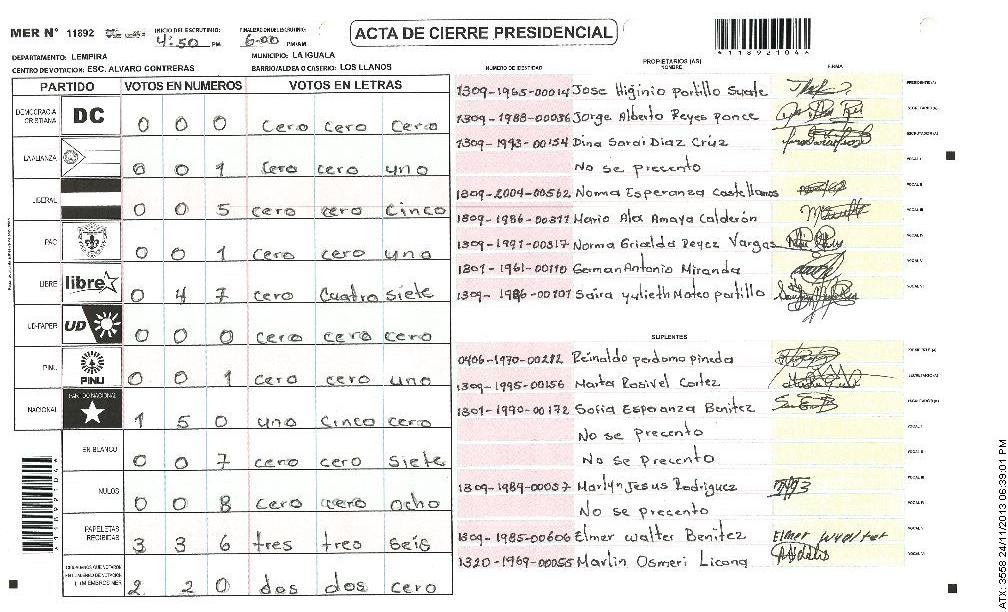 MER N° 11892
INICIO DEL ESCRUTINIO:
4:50 PM
FINALIZACION ESCRUTINIO:
6:00 PM/AM
ACTA DE CIERRE PRESIDENCIAL
11892104
DEPARTAMENTO: LEMPIRA
MUNICIPIO: LA IGUALA
CENTRO DE VOTACION: ESC. ALVARO CONTRERAS
BARRIO/ALDEA O CASERIO: LOS LLANOS
PARTIDO VOTOS EN NUMEROS VOTOS EN LETRAS
DEMOCRACIA CRISTIANA DC 0 0 0 cero cero cero
LA ALIANZA 0 0 1 cero cero uno
LIBERAL 0 0 5 cero cero cinco
PAC 0 0 1 cero cero uno
LIBRE libre 0 4 7 cero cuatro siete
UD-FAPER UD 0 0 0 cero cero cero
PINU PINU 0 0 1 cero cero uno
NACIONAL PARTIDO NACIONAL 1 5 0 uno cinco cero
EN BLANCO 0 0 7 cero cero siete
NULOS 0 0 8 cero cero ocho
PAPELETAS RECIBIDAS 3 3 6 tres tres seis
2 2 0 dos dos cero
NUMERO DE IDENTIDAD
PROPIETARIOS (AS)
NOMBRE
FIRMA
1309-1965-00014 Jose Higinio Portillo
PRESIDENTE (A)
1309-1988-00036 Jorge Alberto Reyes Ponce
SECRETARIO (A)
1309-1993-00154 Dina Sarai Diaz Cruz
ESCRUTADOR (A)
No se precento
VOCAL I
1309-2004-00562 Norma Esperanza Castellanos
VOCAL II
1309-1986-00377 Mario Alex Amaya Calderón
VOCAL III
1309-1991-00317 Norma Griselda Reyez Vargas
VOCAL IV
1301-1961-00110 German Antonio Miranda
VOCAL V
1309-1986-00707 Saira yulieth Mateo portillo
VOCAL VI
SUPLENTES
0406-1970-00282 Reinaldo perdomo pineda
PRESIDENTE (A)
1309-1995-00156 Marta Rosivel Cortez
SECRETARIO (A)
1301-1990-00172 Sofia Esperanza Benitez
ESCRUTADOR (A)
No se precento
VOCAL I
No se precento
VOCAL II
1309-1989-00057 Marlyn Jesus Rodriguez
VOCAL III
No se precento
VOCAL IV
1309-1985-00606 Elmer walter Benitez Elmer walter
VOCAL V
1320-1969-00055 Marlin Osmeri Licona
VOCAL VI
ATX: 3558 24/11/2013 06:39:01 PM